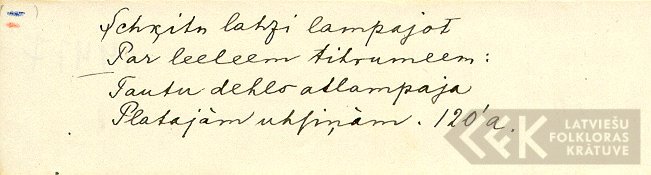 Schķitu lahzi lampajot
Par leeleem tihrumeem:
Tautu dehls atlampaja
Platajām uhsiņām. 120'a.
LATVIEŠU
FOLKLORAS
KRĀTUVE